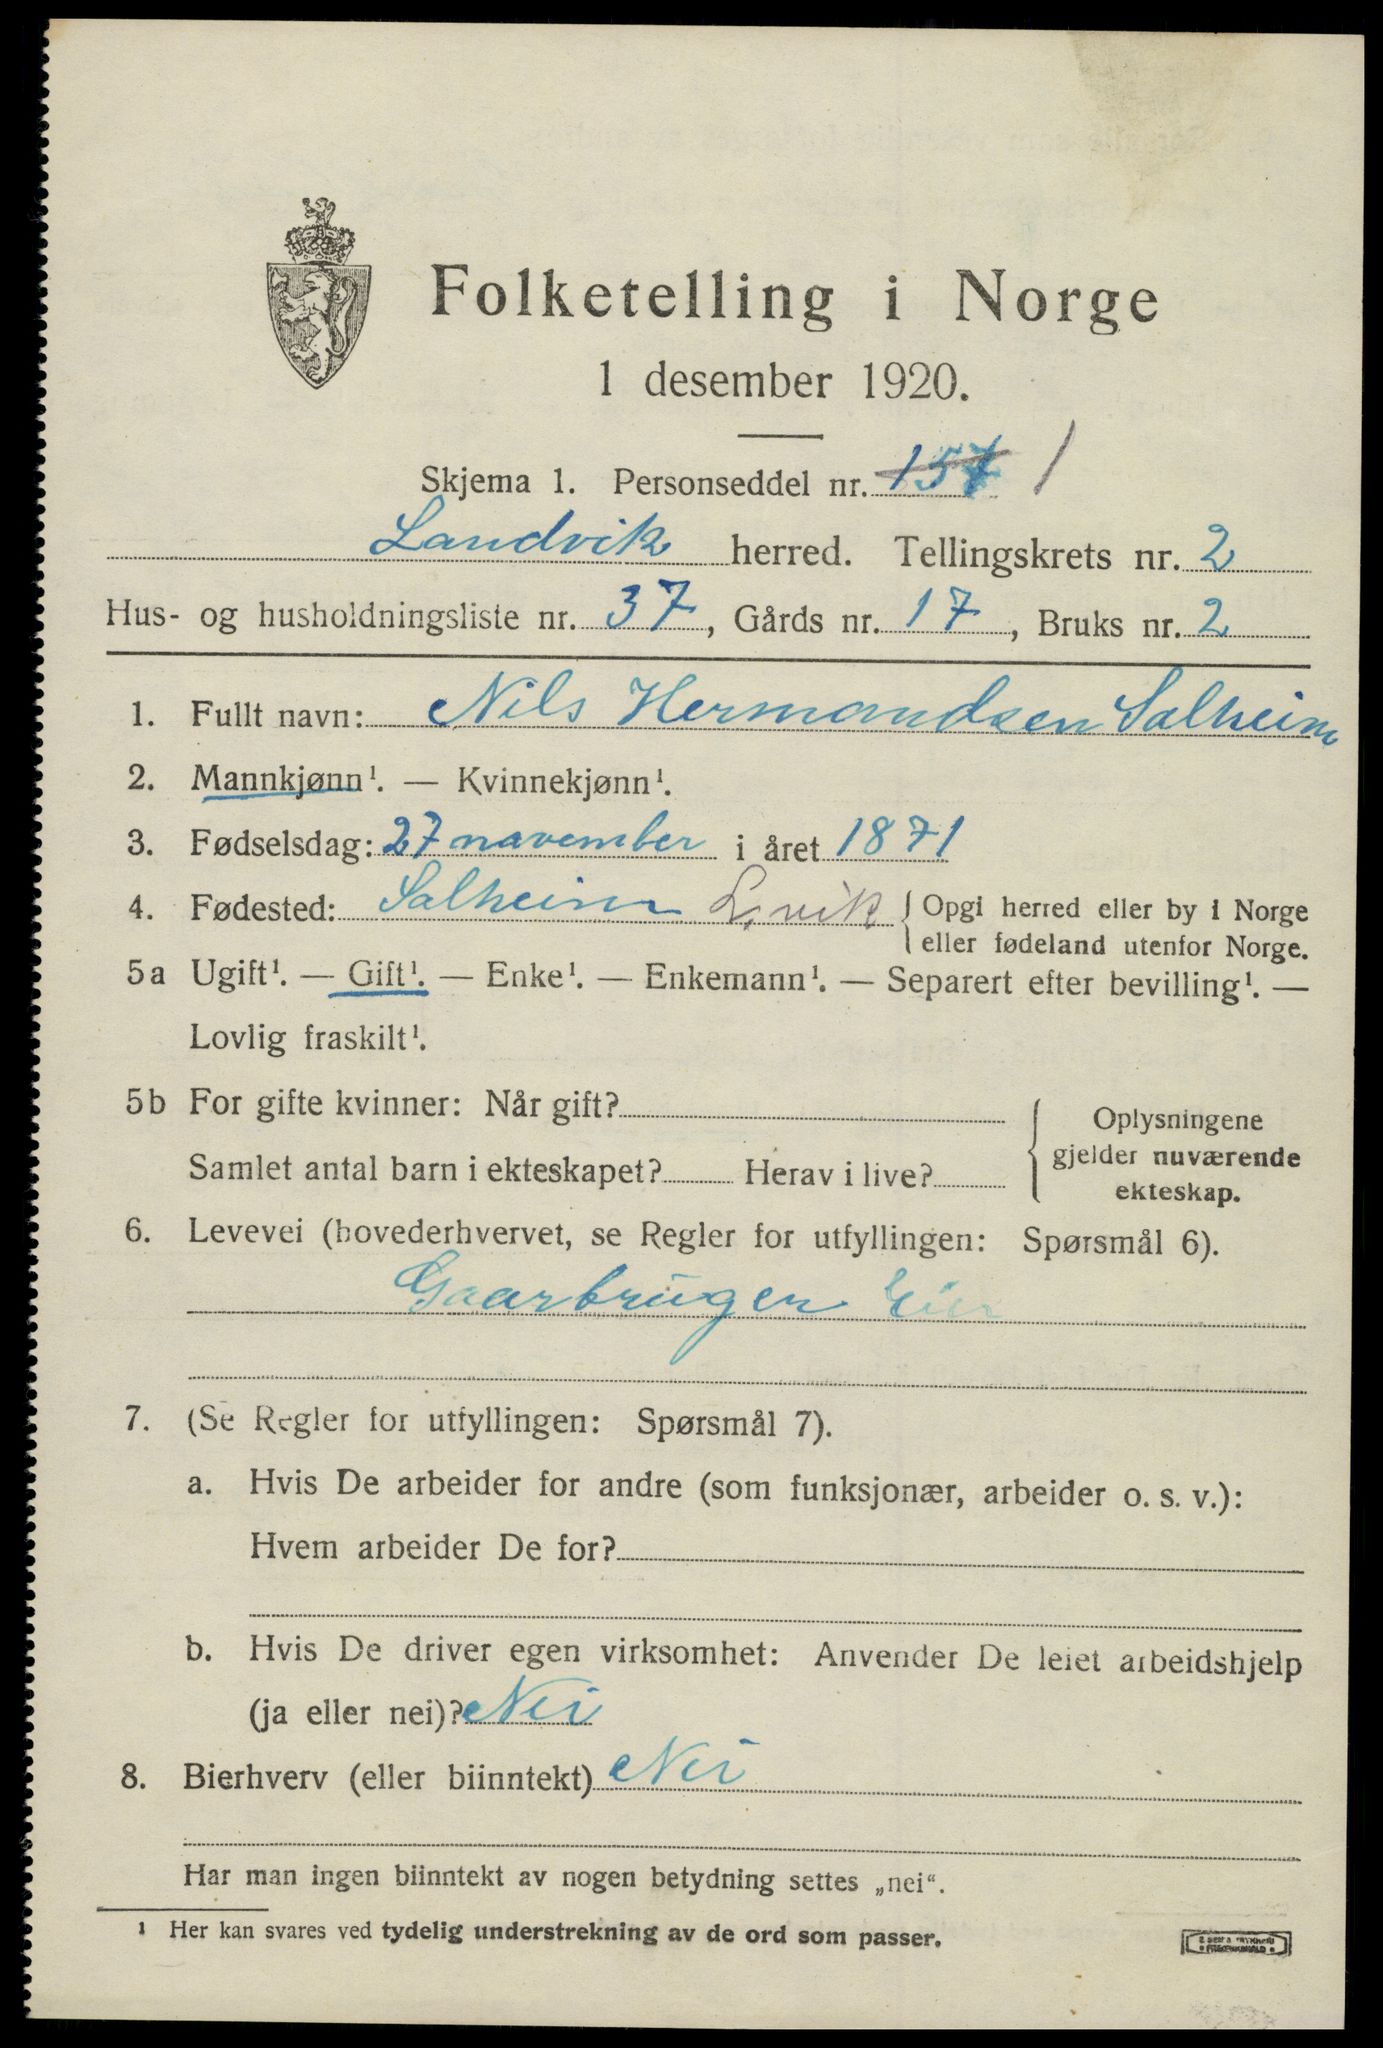 Folketelling i Norge
1 desember 1920.
Skjema 1. Personseddel nr. 1571 1
Landvik herred. Tellingskrets nr. 2
Hus- og husholdningsliste nr. 37, Gårds nr. 17, Bruks nr. 2
1. Fullt navn: Nils Hermandsen Salheim
2. Mannkjønn¹. — Kvinnekjønn¹.
3. Fødselsdag: 27 november i året 1871
4. Fødested: Salheim L.vik { Opgi herred eller by i Norge
eller fødeland utenfor Norge.
5a Ugift¹. — Gift¹. — Enke¹. — Enkemann¹. — Separert efter bevilling¹. —
Lovlig fraskilt¹.
5b For gifte kvinner: Når gift?
Samlet antal barn i ekteskapet? Herav i live?
Oplysningene
gjelder nuværende
ekteskap.
6. Levevei (hovederhvervet, se Regler for utfyllingen: Spørsmål 6).
Gaarbruger Eier
7. (Se Regler for utfyllingen: Spørsmål 7).
a. Hvis De arbeider for andre (som funksjonær, arbeider o. s. v.):
Hvem arbeider De for?
b. Hvis De driver egen virksomhet: Anvender De leiet arbeidshjelp
(ja eller nei)? Nei
8. Bierhverv (eller biinntekt) Nei
Har man ingen biinntekt av nogen betydning settes „nei“.
¹ Her kan svares ved tydelig understrekning av de ord som passer.